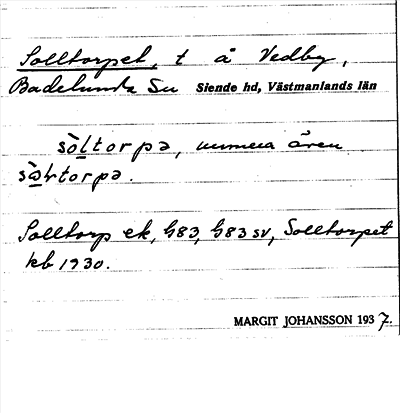 Solltorpet, t å Vedby,
Badelunda Sn Siende hd, Västmanlands län
sòltorpa, numera även
sòltorpa.
Solltorp ek, h83, h83 sv, Solltorpet
kb 1930.
MARGIT JOHANSSON 1937.